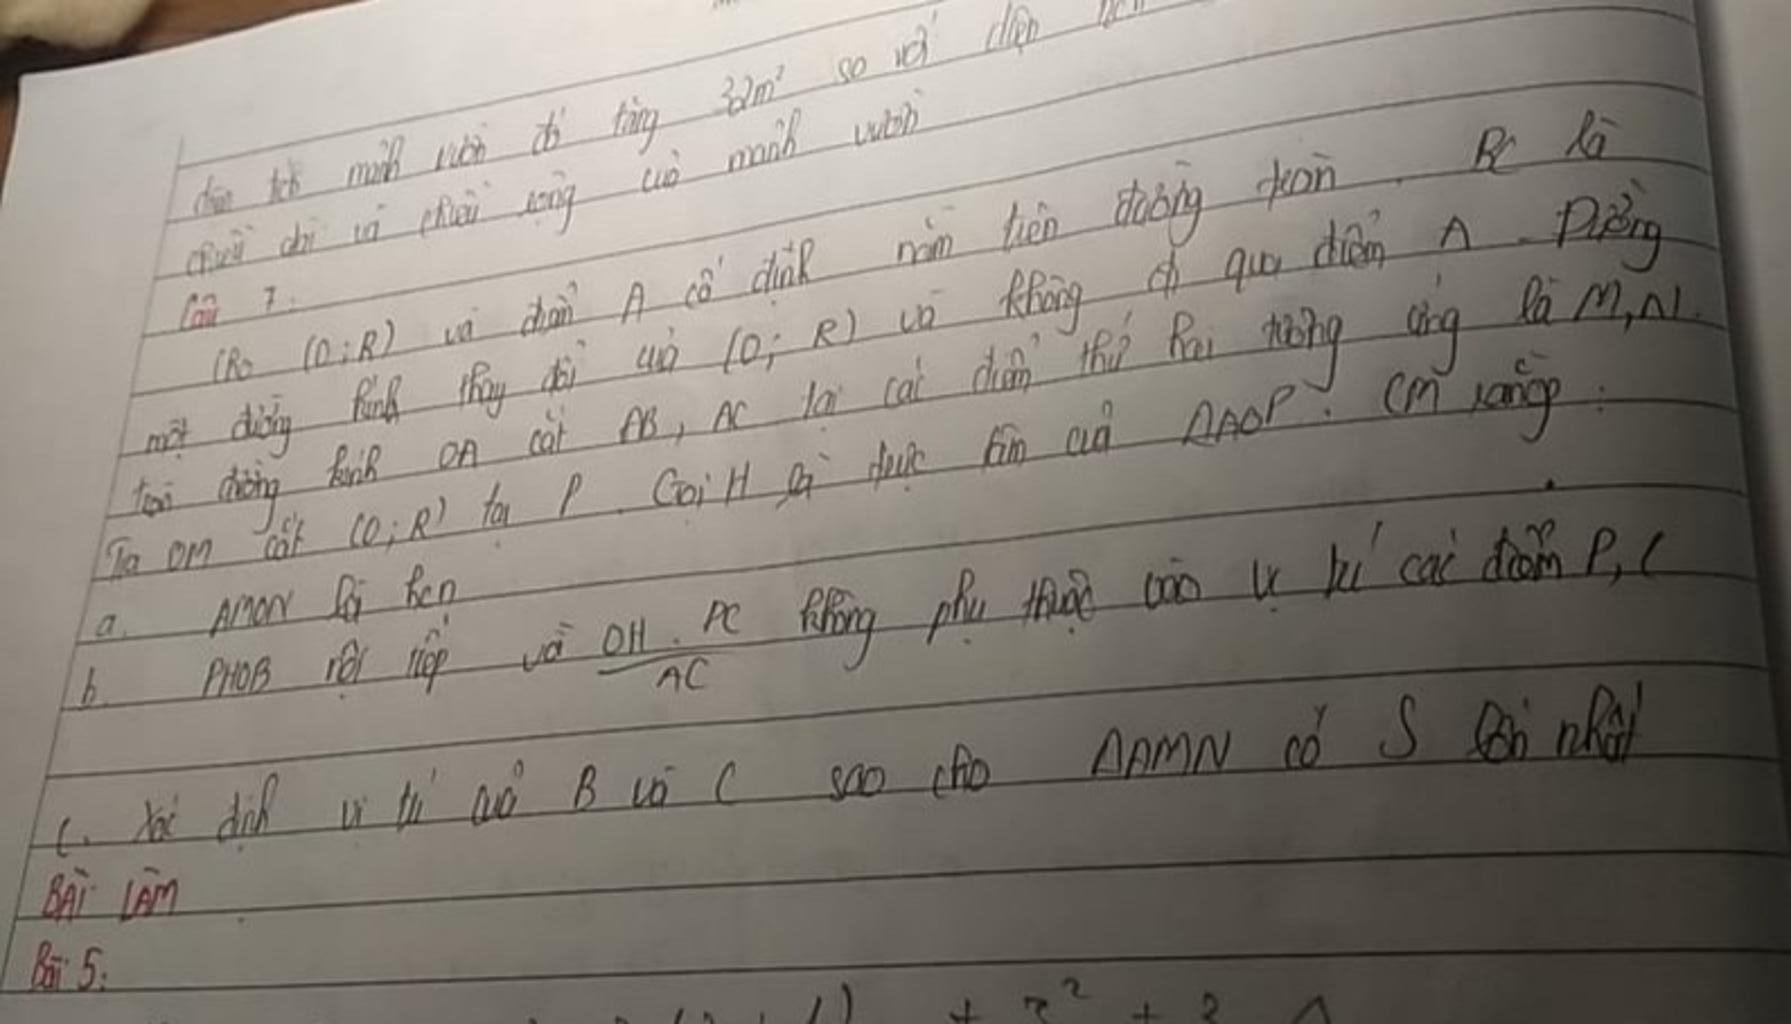 diện tích mảnh vườn đó tăng 32m² so với diện
chiều dài và chiều rộng của mảnh vườn
Câu 7.
Cho (O;R) và điểm A cố định nằm trên đường tròn. BC là
một đường kính thay đổi của (O; R) và không đi qua điểm A. Đường
tròn đường kính OA cắt AB, AC tại các điểm thứ hai tương ứng là M, N.
Tia OM cắt (O;R) tại P. Gọi H là trực tâm của ΔAOP. CM rằng:
a. AMON là hcn
b. PHOB nội tiếp và OH . PC / AC không phụ thuộc vào vị trí các điểm P, C
c. Xác định vị trí của B và C sao cho ΔAMN có S lớn nhất
BÀI LÀM
Bài 5: